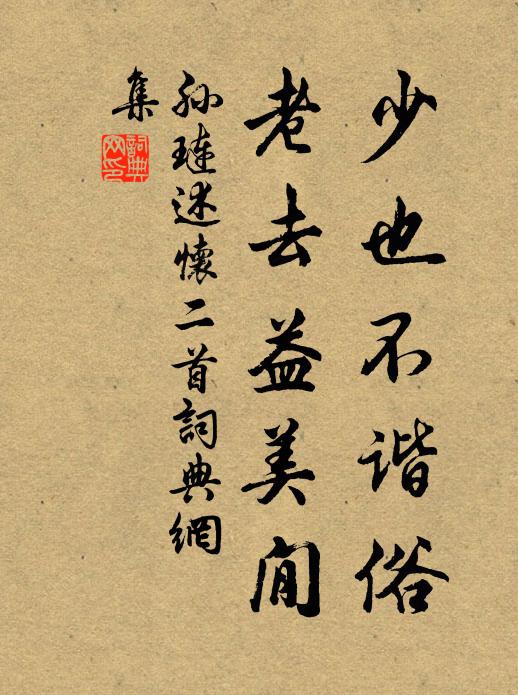 少也不谐俗
老去益美闲
孙琏述懷二首詞典網
集
詞典網印